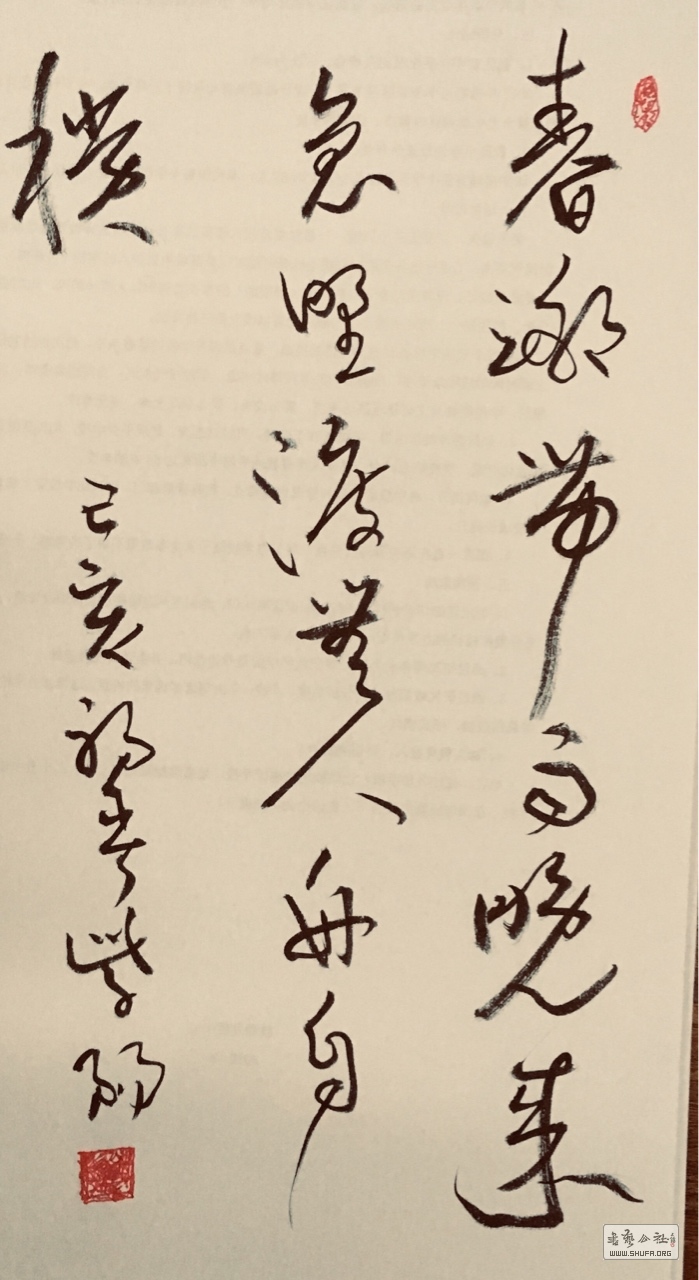 春潮带雨晚来
急野渡无人舟自
横
己亥初春
WWW.SHUFA.ORG